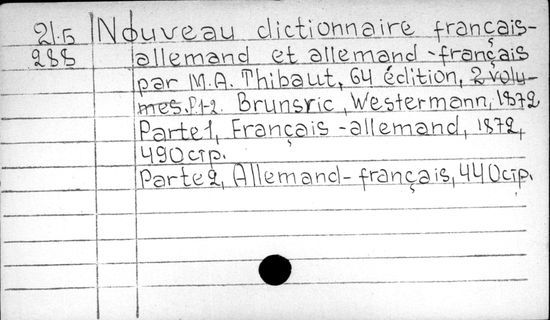 21.5 Nouveau dictionnaire français-
288 allemand et allemand-français
par M.A. Thibaut, 64 édition, 2 volu-
mes.P1-2. Brunsric, Westermann, 1872
Parte 1, Français-allemand, 1872,
490 стр.
Parte 2, Allemand-français, 440 стр.